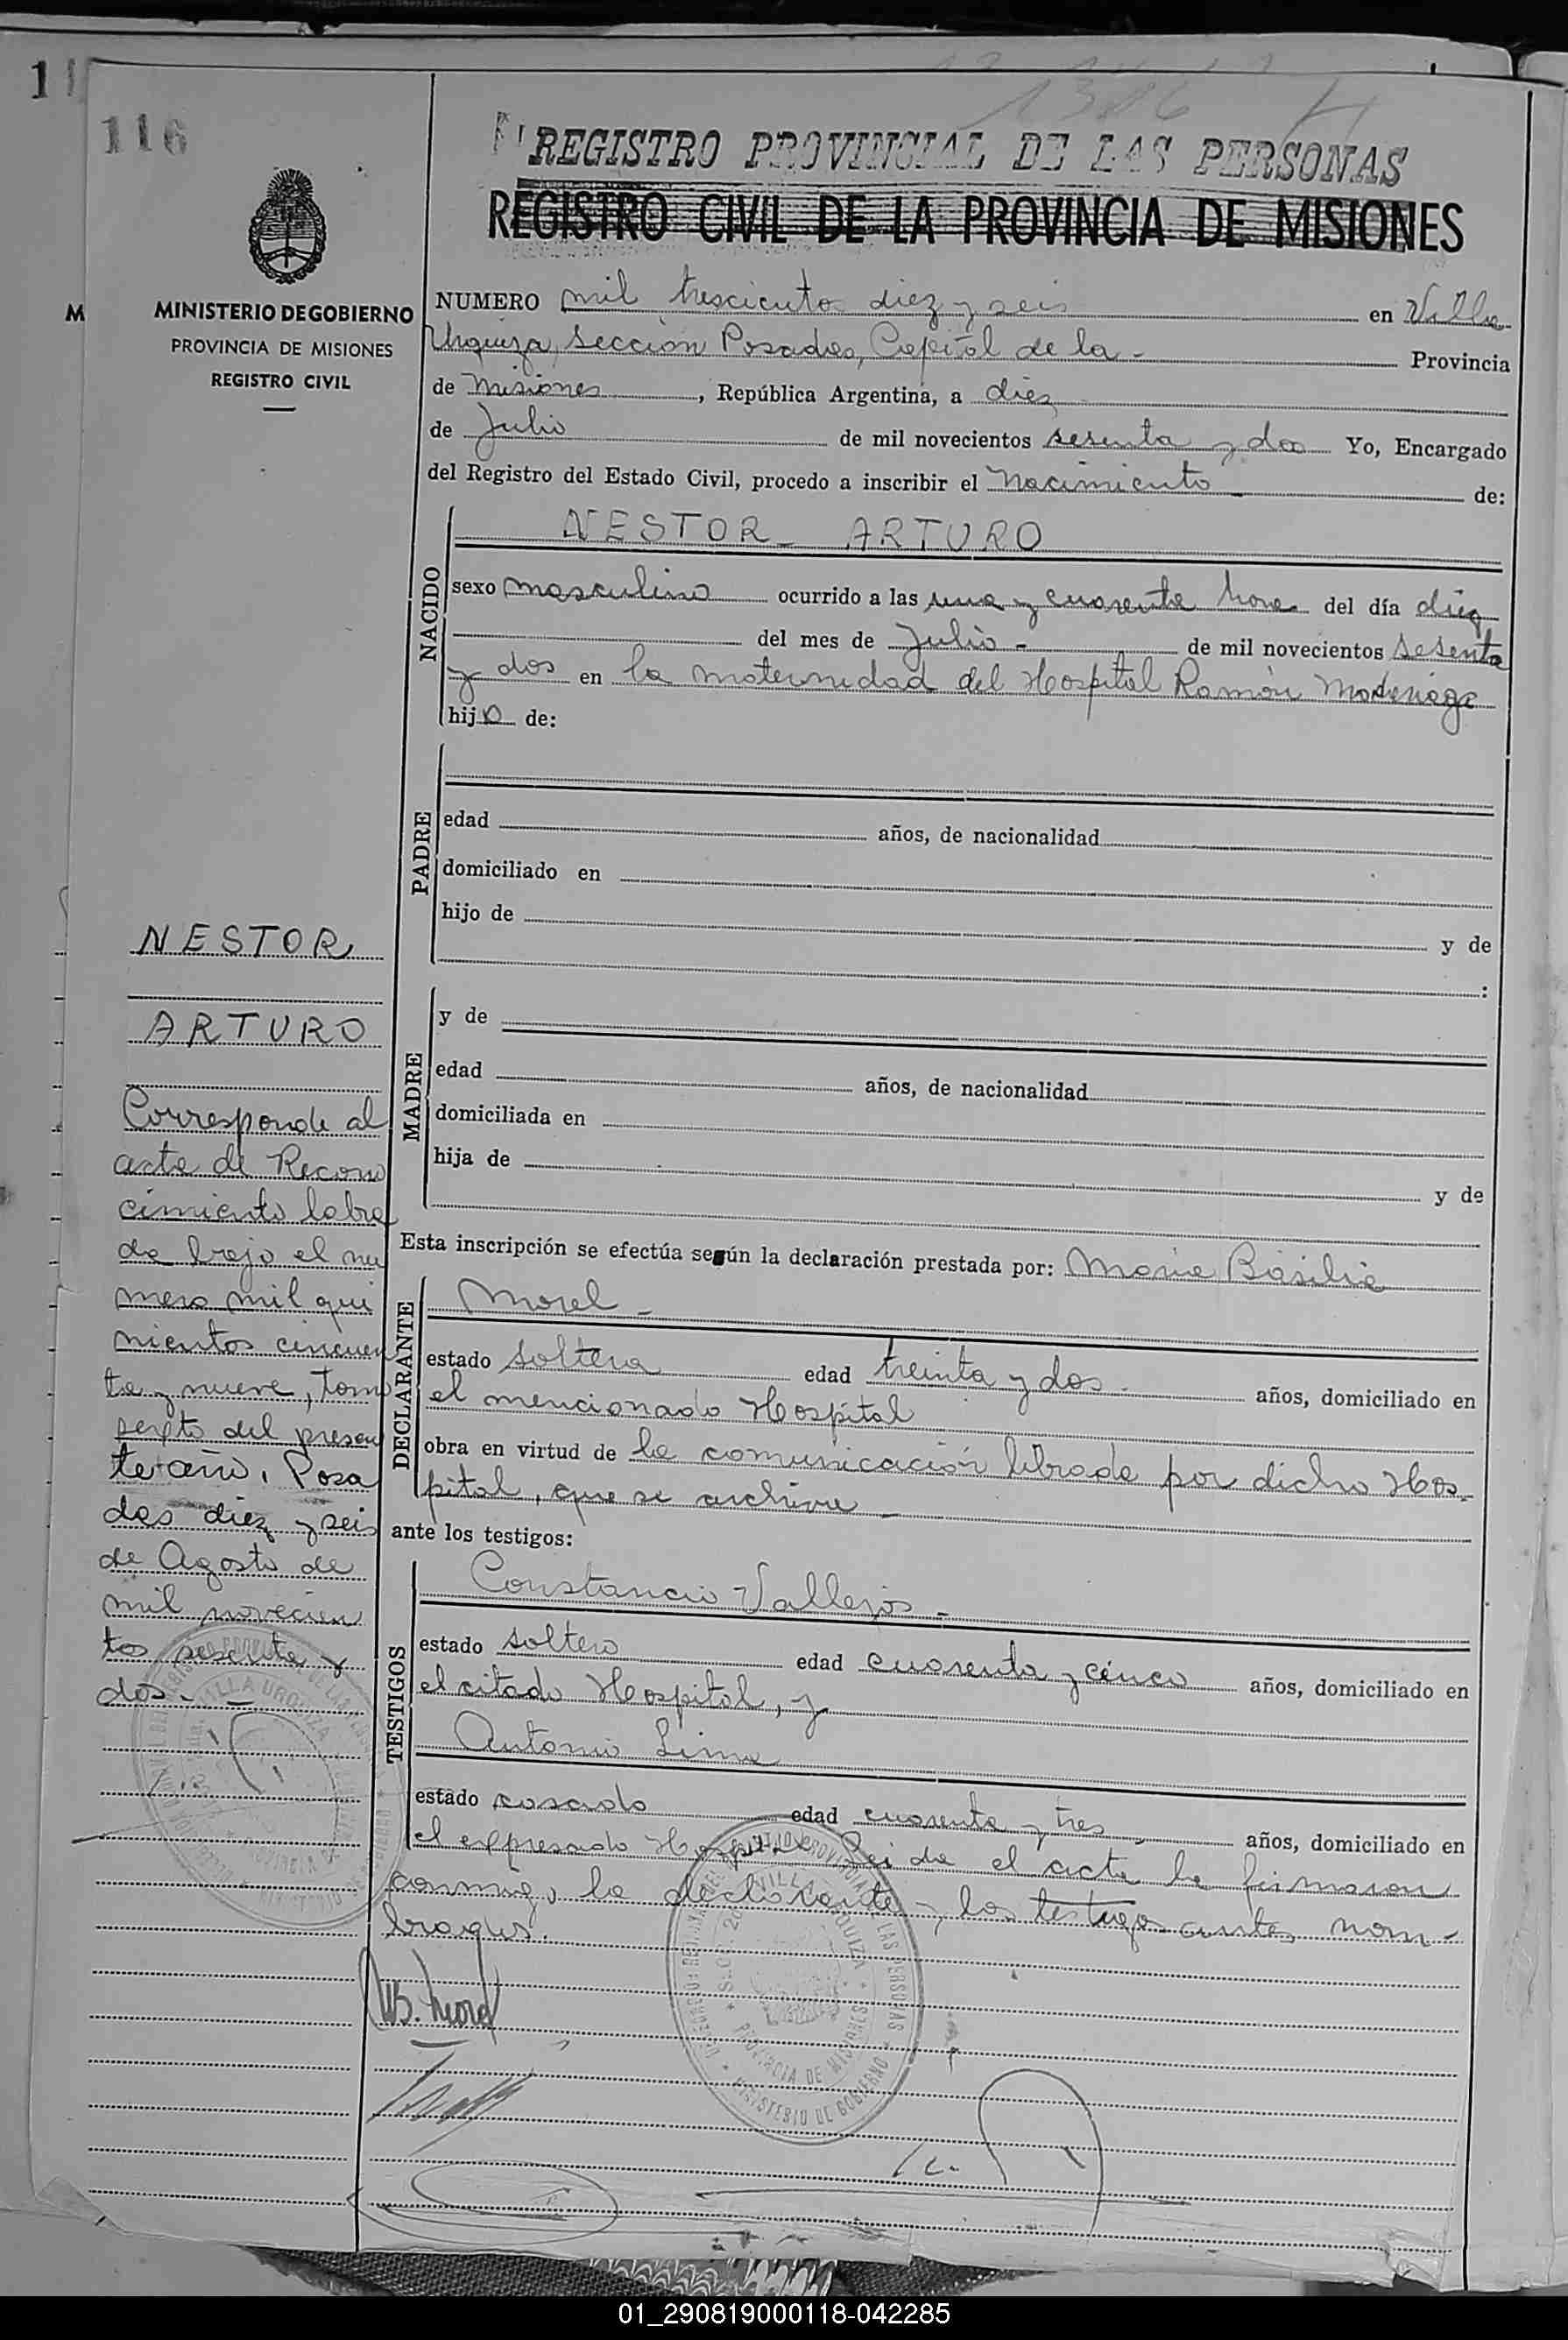 1
116
REGISTRO PROVINCIAL DE LAS PERSONAS
REGISTRO CIVIL DE LA PROVINCIA DE MISIONES
M
MINISTERIO DE GOBIERNO
PROVINCIA DE MISIONES
REGISTRO CIVIL
NUMERO mil trescientos diez y seis en Villa
Urquiza, Sección Posadas, Capital de la - Provincia
de Misiones, República Argentina, a diez
de Julio de mil novecientos sesenta y dos Yo, Encargado
del Registro del Estado Civil, procedo a inscribir el Nacimiento de:
NACIDO
NESTOR - ARTURO
sexo masculino ocurrido a las una y cuarenta hora del día diez
del mes de Julio - de mil novecientos sesenta
y dos en la maternidad del Hospital Ramón Madariaga
hijo de:
PADRE
edad años, de nacionalidad
domiciliado en
hijo de y de
:
MADRE
y de
edad años, de nacionalidad
domiciliada en
hija de y de
Esta inscripción se efectúa según la declaración prestada por: Maria Basilia
DECLARANTE
Morel -
estado soltera edad treinta y dos - años, domiciliado en
el mencionado Hospital
obra en virtud de la comunicación librada por dicho Hos-
pital, que se archiva -
ante los testigos:
TESTIGOS
Constancio Vallejos -
estado soltero edad cuarenta y cinco años, domiciliado en
el citado Hospital, y
Antonio Lima
estado casado edad cuarenta y tres - años, domiciliado en
el expresado Hospital Leida el acta la firmaron
conmigo la declarante y los testigos antes nom-
brados.
NESTOR
ARTURO
Corresponde al
acta de Recono
cimiento labra
da bajo el nu
mero mil qui
nientos cincuen
ta y nueve, tomo
sexto del presen
te año, Posa
das diez y seis
de Agosto de
mil novecien
tos sesenta y
dos. -
B. Morel
VILLA URQUIZA
PROVINCIA DE MISIONES
MINISTERIO DE GOBIERNO
01_290819000118-042285